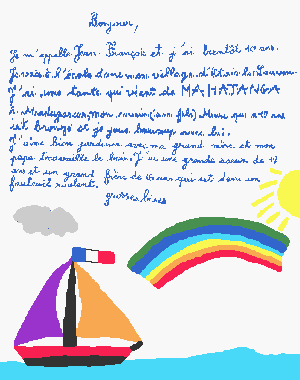 Bonjour,
Je m'appelle Jean François et j'ai bientôt 10 ans.
Je vais à l'école dans mon village d'
J'ai une tante qui vient de MAHAJANGA
à Madagascar, mon cousin (son fils) Manu qui a 10 ans
est bronzé et je joue beaucoup avec lui.
J'aime bien jardiner avec ma grand mère et mon
papa travaille le bois. J'ai une grande soeur de 17
ans et un grand frère de 16 ans qui est dans un
fauteuil roulant.
grosses bises